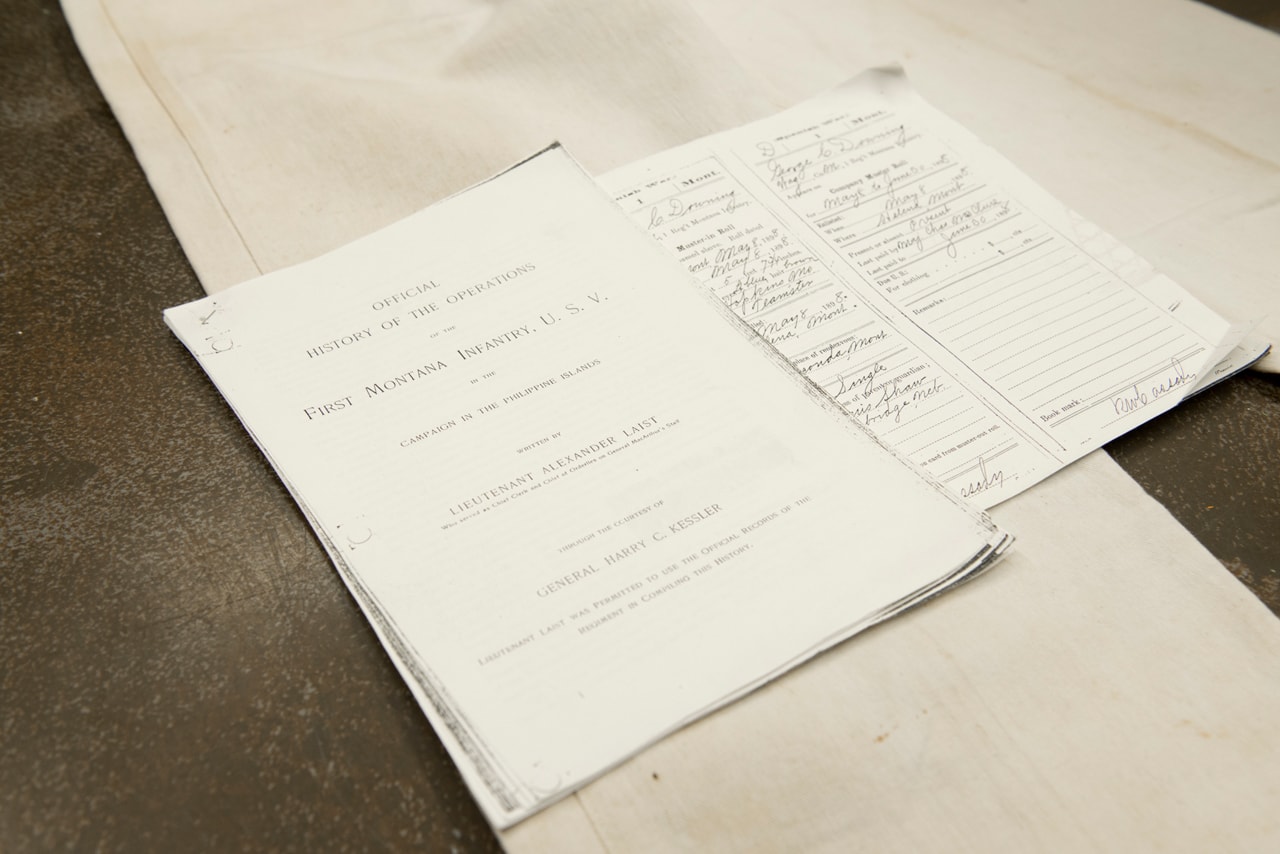 OFFICIAL
HISTORY OF THE OPERATIONS
OF THE
FIRST MONTANA INFANTRY, U. S. V.
IN THE
CAMPAIGN IN THE PHILIPPINE ISLANDS
WRITTEN BY
LIEUTENANT ALEXANDER LAIST
Who served as Chief Clerk and Chief of Orderlies on General MacArthur's Staff
THROUGH THE COURTESY OF
GENERAL HARRY C. KESSLER
LIEUTENANT LAIST WAS PERMITTED TO USE THE OFFICIAL RECORDS OF THE
REGIMENT IN COMPILING THIS HISTORY.
War.
1 | Mont.
C Downing
1 Reg't Montana
Muster-in Roll
May 8, 1898.
May 8, 1898.
Teamster
May 8 1898.
Mont.
place of rendezvous,
Mont
Single
Shaw
Neb.
card from muster-out roll.
Spanish War.
D | 1 | Mont.
George C Downing
1 Reg't Montana
Company Muster Roll
for May 8 to June 30, 1898.
Enlisted:
When May 8
Where Helena Mont.
Present or absent
Last paid by Maj Chas
Last paid to June 30, 1898
Due U. S.
For clothing $
Remarks:
Book mark: